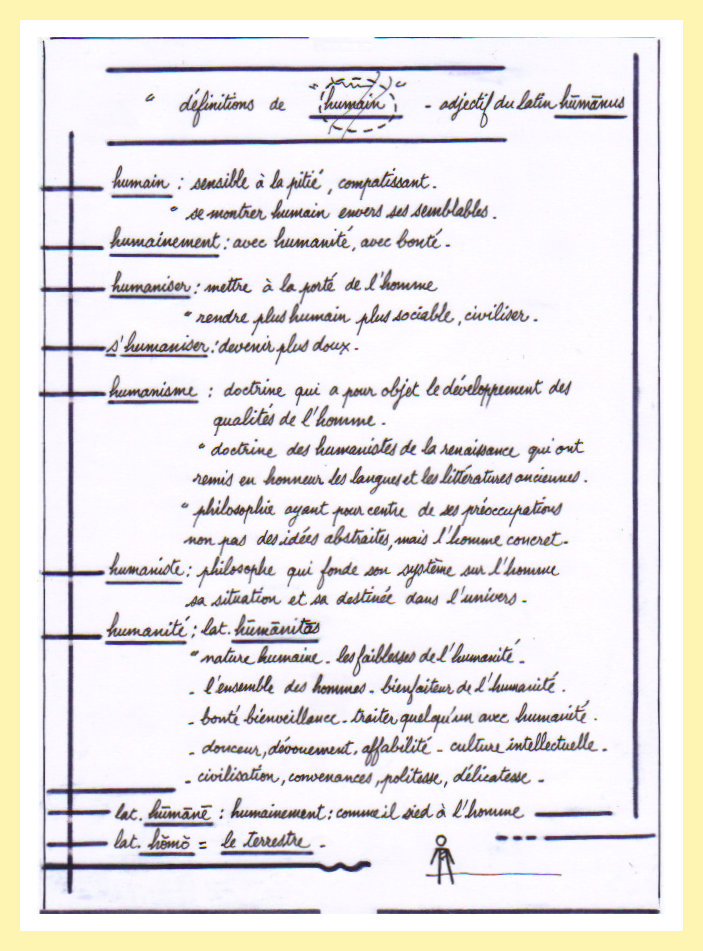 " définitions de "humain" - adjectif du latin hūmānus
humain : sensible à la pitié, compatissant.
" se montrer humain envers ses semblables.
humainement : avec humanité, avec bonté.
humaniser : mettre à la porté de l'homme
" rendre plus humain plus sociable, civiliser.
s'humaniser : devenir plus doux.
humanisme : doctrine qui a pour objet le développement des
qualités de l'homme.
" doctrine des humanistes de la renaissance qui ont
remis en honneur les langues et les littératures anciennes.
" philosophie ayant pour centre de ses préoccupations
non pas des idées abstraites, mais l'homme concret.
humaniste : philosophe qui fonde son système sur l'homme
sa situation et sa destinée dans l'univers.
humanité : lat. hūmānitās
" nature humaine - les faiblesses de l'humanité.
- l'ensemble des hommes - bienfaiteur de l'humanité.
- bonté bienveillance - traiter quelqu'un avec humanité.
- douceur, dévouement, affabilité - culture intellectuelle.
- civilisation, convenances, politesse, délicatesse -
lat. hūmānē : humainement : comme il sied à l'homme
lat. hŏmō = le terrestre.